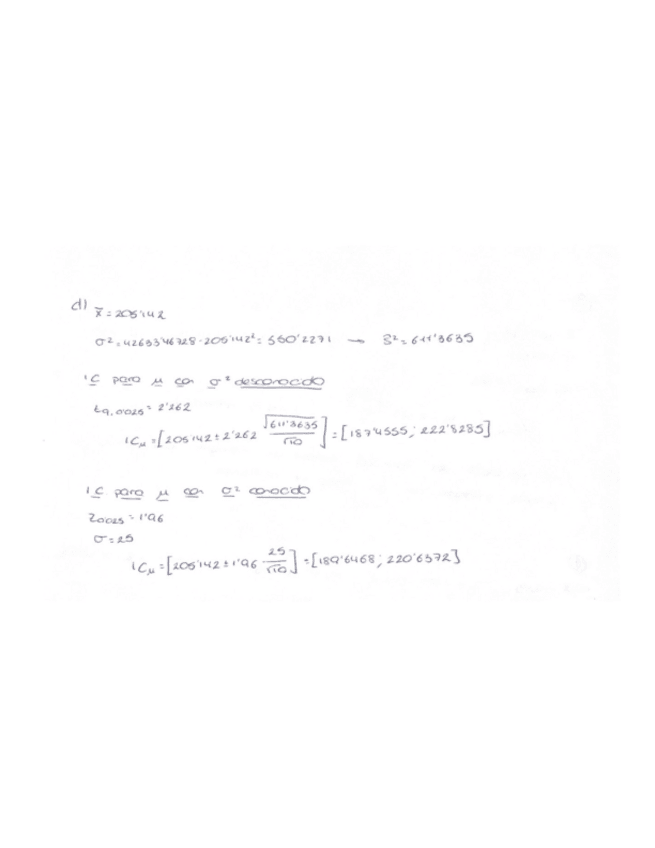 d) x̄ = 205'142
σ² = 42633'46728 - 205'142² = 550'2271 → S² = 611'3635
IC para μ con σ² desconocido
t9, 0'025 = 2'262
ICμ = [205'142 ± 2'262 √611'3635 / √10] = [187'4555; 222'8285]
IC para μ con σ² conocido
Z0025 = 1'96
σ = 25
ICμ = [205'142 ± 1'96 25 / √10] = [189'6468; 220'6372]